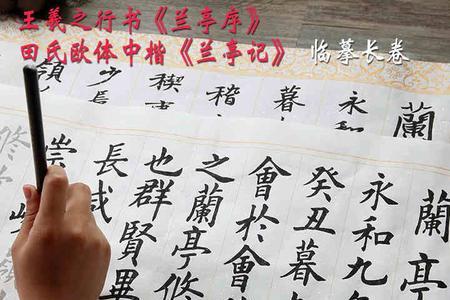 王羲之行书《兰亭序》
田氏欧体中楷《兰亭记》 临摹长卷
蘭
永和
暮
稽
稧
少
領
蘭亭
永和九年
癸丑暮
會於會
之蘭亭脩
也群賢畢
長咸
崇